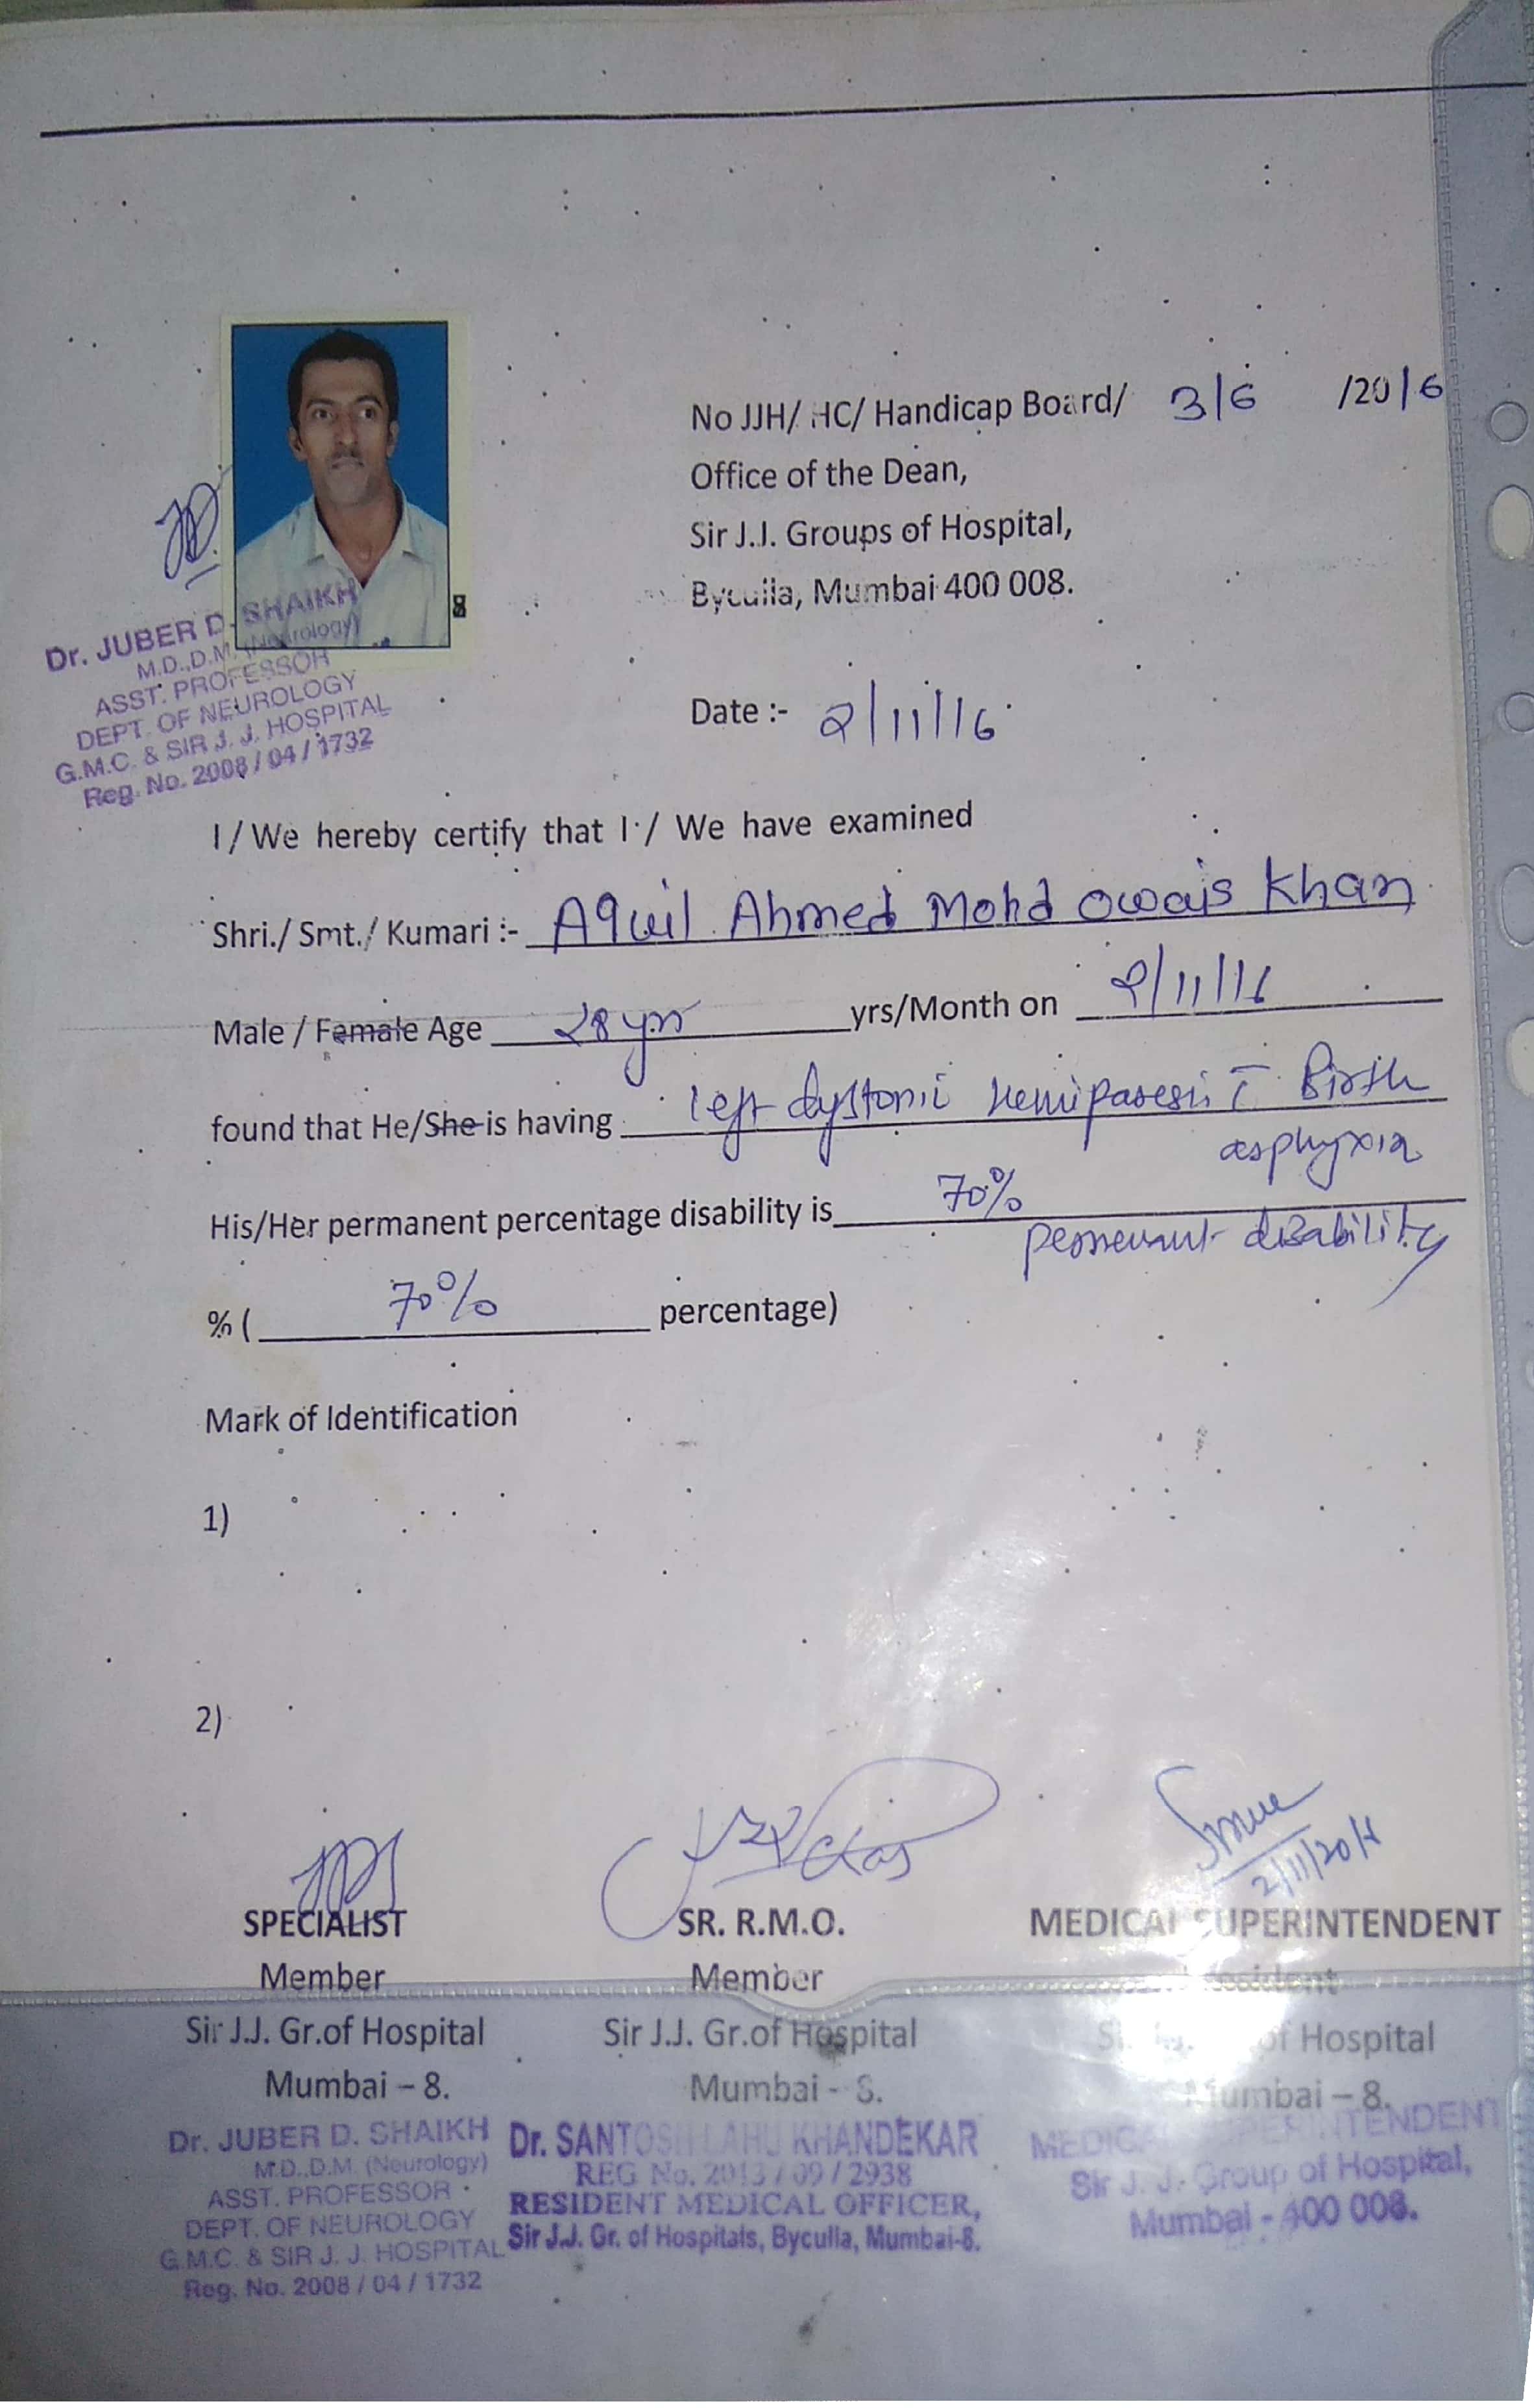 No JJH/ HC/ Handicap Board/ 316 /2016
Office of the Dean,
Sir J.J. Groups of Hospital,
Byculla, Mumbai 400 008.
Dr. JUBER D. SHAIKH
M.D.,D.M. (Neurology)
ASST. PROFESSOR
DEPT. OF NEUROLOGY
G.M.C. & SIR J. J. HOSPITAL
Reg. No. 2008 / 04 / 1732
Date :- 2/11/16
I / We hereby certify that I / We have examined
Shri./ Smt./ Kumari :- Aquil Ahmed Mohd Owais Khan
Male / Female Age 28 yrs yrs/Month on 2/11/16
found that He/She is having left dystonic hemiparesis Birth
asphyxia
His/Her permanent percentage disability is 70%
permenant disability
% ( 70% percentage)
Mark of Identification
1)
2)
2/11/2016
SPECIALIST SR. R.M.O. MEDICAL SUPERINTENDENT
Member Member
Sir J.J. Gr.of Hospital Sir J.J. Gr.of Hospital of Hospital
Mumbai – 8. Mumbai - 8. Mumbai – 8.
Dr. JUBER D. SHAIKH Dr. SANTOSH LAHU KHANDEKAR MEDICAL SUPERINTENDENT
M.D.,D.M. (Neurology) REG No. 2013 / 09 / 2938 Sir J. J. Group of Hospital,
ASST. PROFESSOR RESIDENT MEDICAL OFFICER, Mumbai - 400 008.
DEPT. OF NEUROLOGY Sir J.J. Gr. of Hospitals, Byculla, Mumbai-8.
G.M.C. & SIR J. J. HOSPITAL
Reg. No. 2008 / 04 / 1732